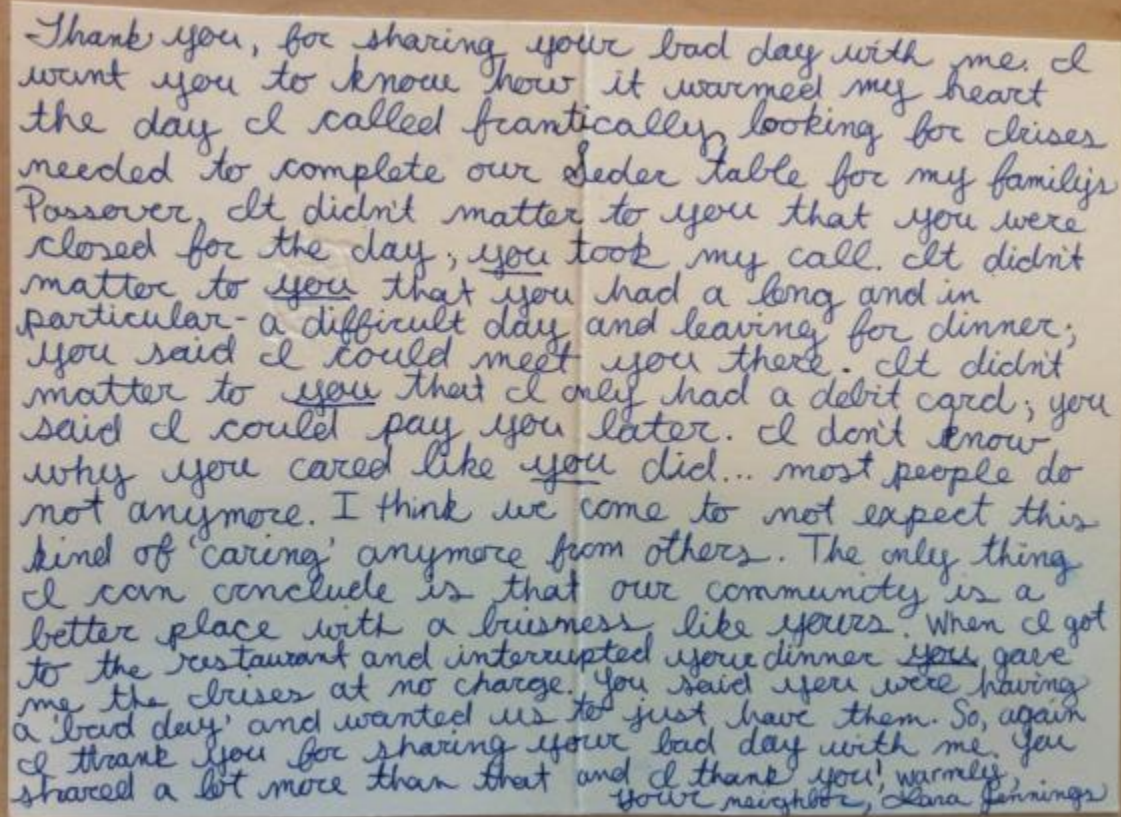 Thank you, for sharing your bad day with me. I
want you to know how it warmed my heart
the day I called frantically, looking for Irises
needed to complete our Seder table for my family's
Passover. It didn't matter to you that you were
closed for the day; you took my call. It didn't
matter to you that you had a long and in
particular - a difficult day and leaving for dinner;
you said I could meet you there. It didn't
matter to you that I only had a debit card; you
said I could pay you later. I don't know
why you cared like you did... most people do
not anymore. I think we come to not expect this
kind of 'caring' anymore from others. The only thing
I can conclude is that our community is a
better place with a buisness like yours. When I got
to the restaurant and interrupted your dinner you gave
me the Irises at no charge. You said you were having
a 'bad day' and wanted us to just have them. So, again
I thank you for sharing your bad day with me. You
shared a lot more than that and I thank you! warmly,
your neighbor, Jennings